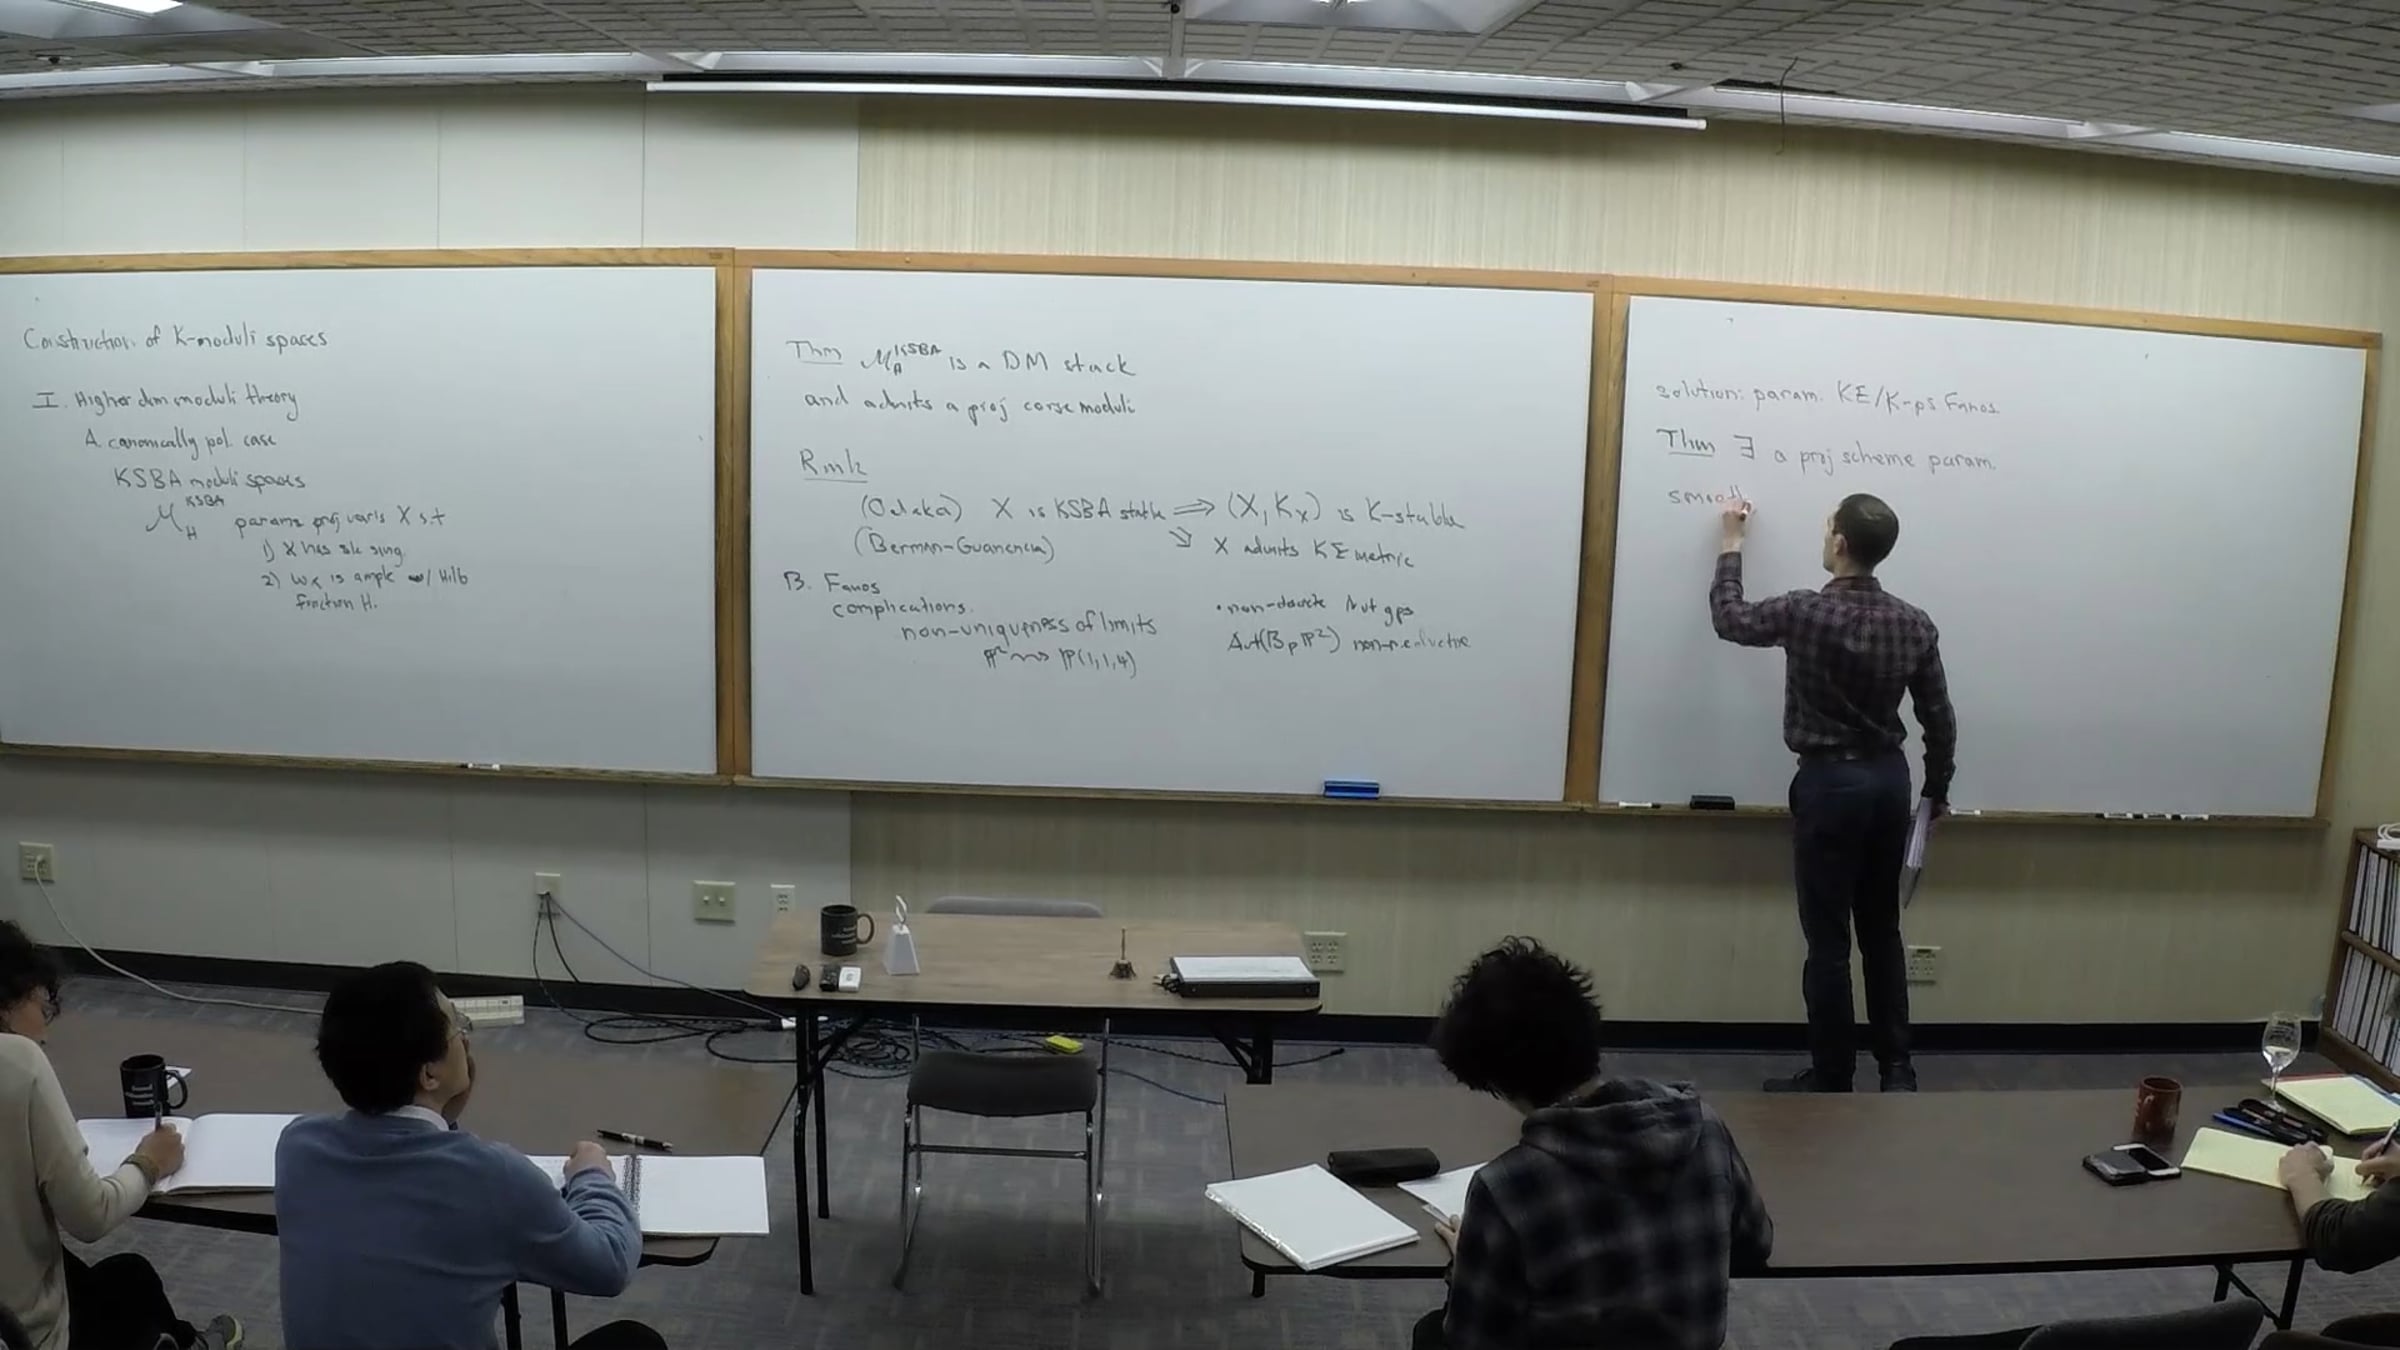 Construction of K-moduli spaces
I. Higher dim moduli theory
A. canonically pol. case
KSBA moduli spaces
M_H^KSBA params proj varis X s.t
1) X has slc sing.
2) ω_X is ample w/ Hilb
function H.
Thm M_H^KSBA is a DM stack
and admits a proj corse moduli
Rmk
(Odaka) X is KSBA stable ⟹ (X, K_X) is K-stable
(Berman-Guenancia) ⇘ X admits KE metric
B. Fanos
complications.
non-uniqueness of limits
P² ⇝ P(1,1,4)
• non-discrete Aut gps
Aut(B_p P²) non-reductive
Solution: param. KE/K-ps Fanos.
Thm ∃ a proj scheme param.
smooth